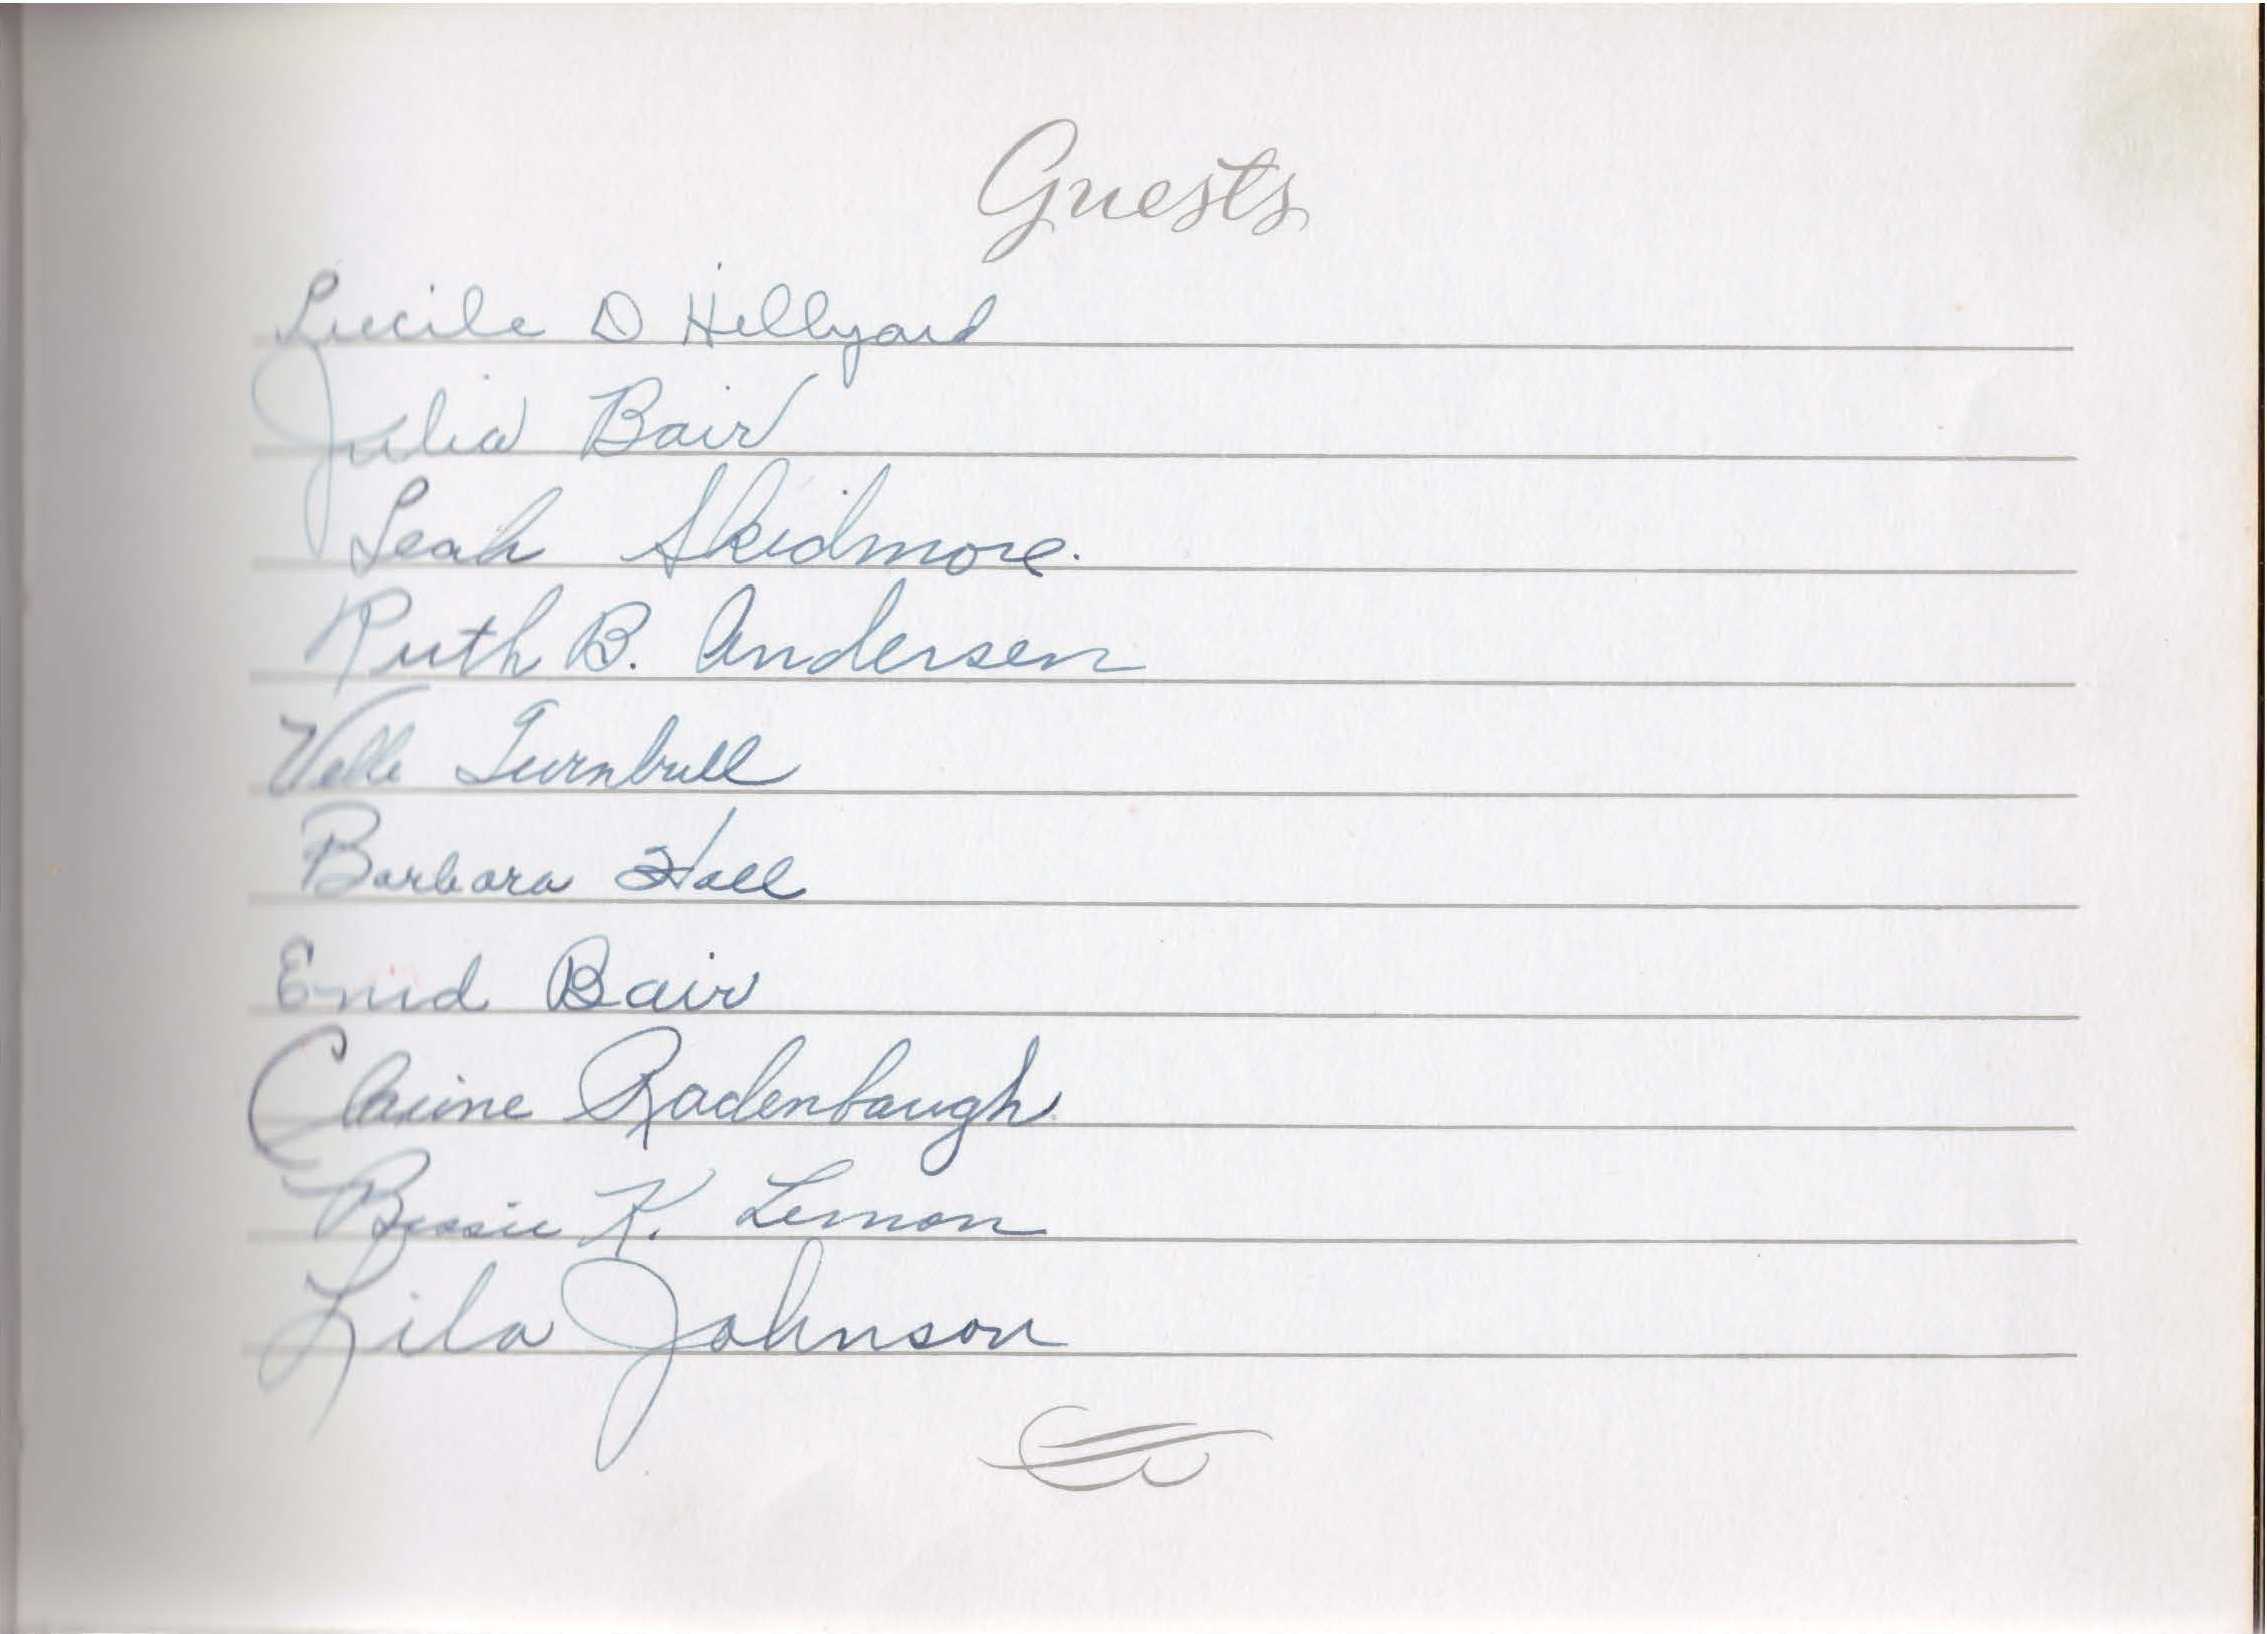 Guests
Lucile D Hillyard
Julia Bair
Leah Skidmore.
Ruth B. Andersen
Turnbull
Barbara Hall
Enid Bair
Radenbaugh
Bessie K. Lemon
Lila Johnson